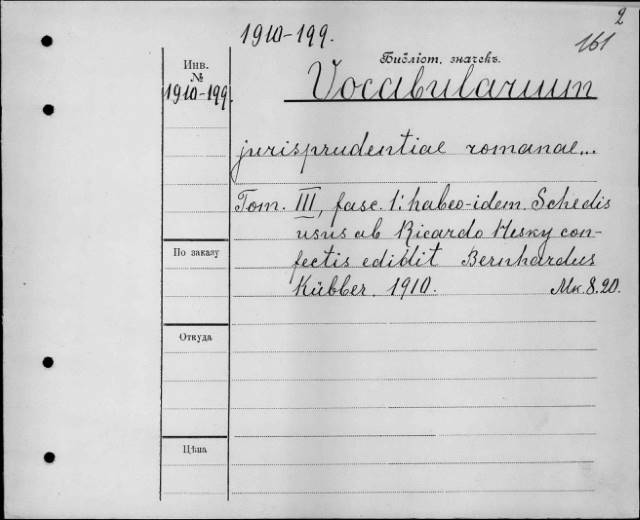 2
1910-199.
161
Библіот. значекъ.
Инв.
№
1910-199.
Vocabularium
jurisprudentiae romanae...
Tom. III, fasc. 1: habeo-idem. Schedis
usus ab Ricardo Hesky con-
fectis edidit Bernhardus
Kübber. 1910. Мк. 8.20.
По заказу
Откуда
Цѣна